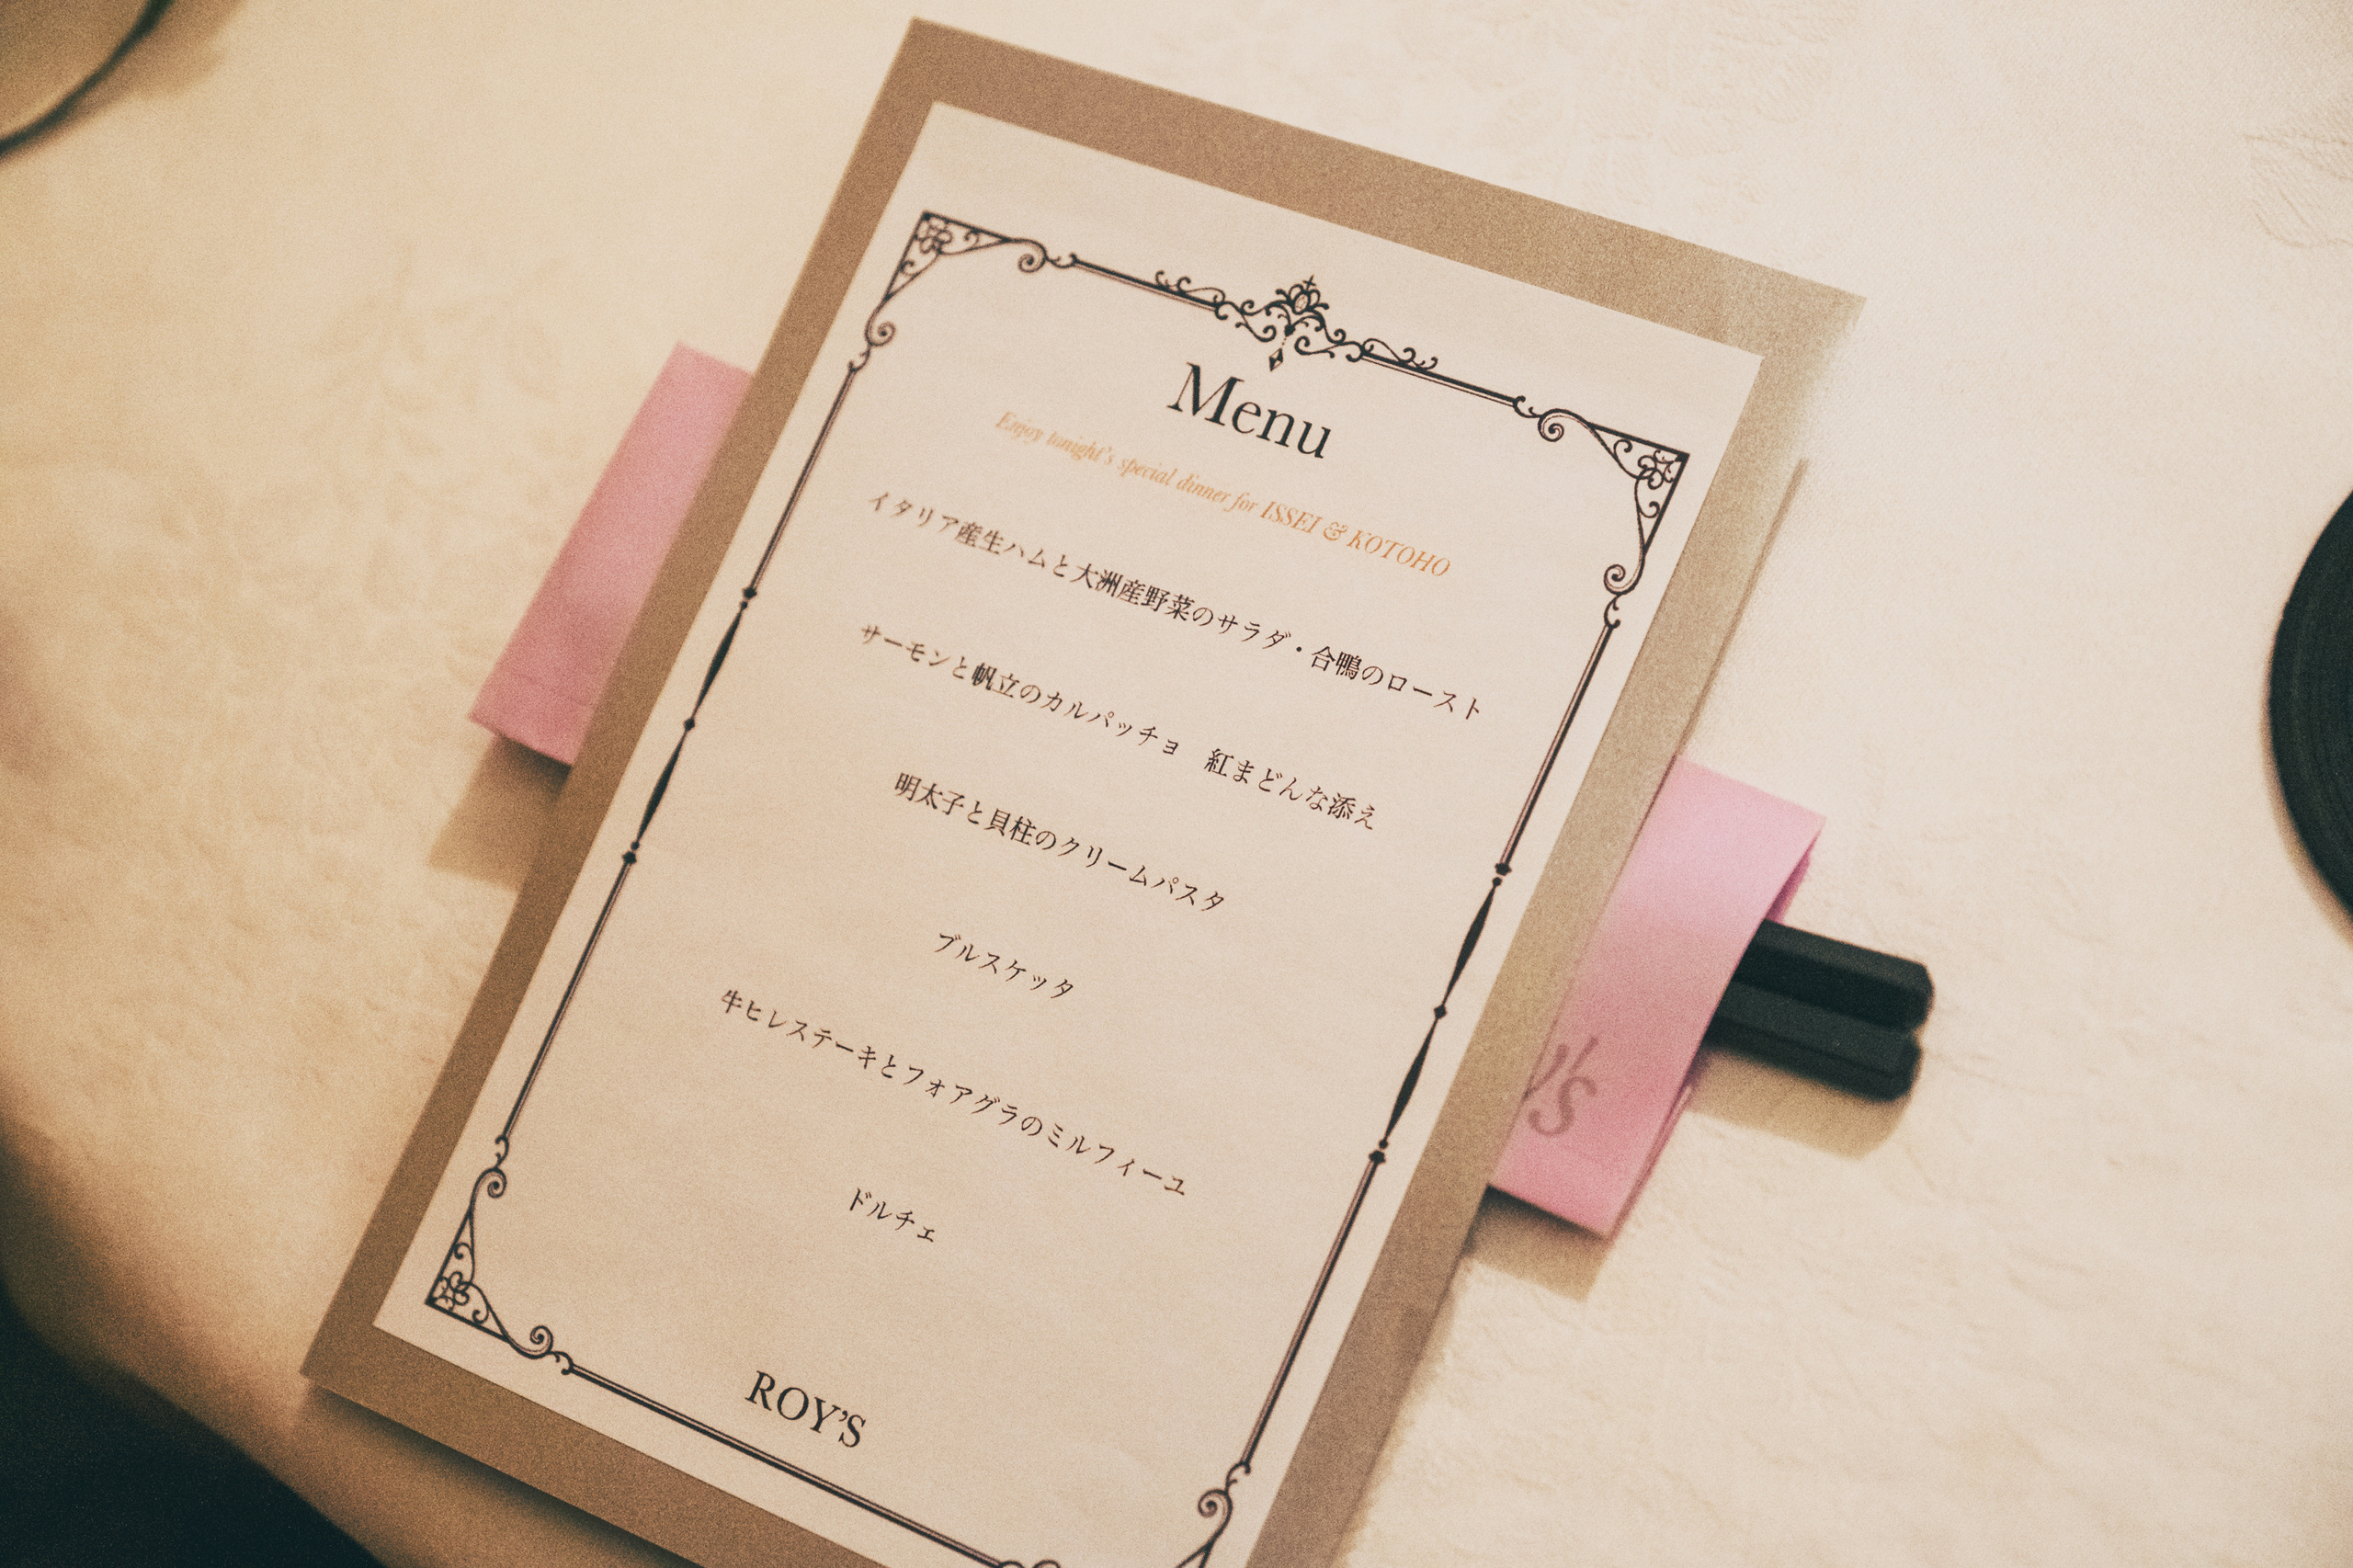 Menu
Enjoy tonight's special dinner for ISSEI & KOTOHO
イタリア産生ハムと大洲産野菜のサラダ・合鴨のロースト
サーモンと帆立のカルパッチョ　紅まどんな添え
明太子と貝柱のクリームパスタ
ブルスケッタ
牛ヒレステーキとフォアグラのミルフィーユ
ドルチェ
ROY'S
y's